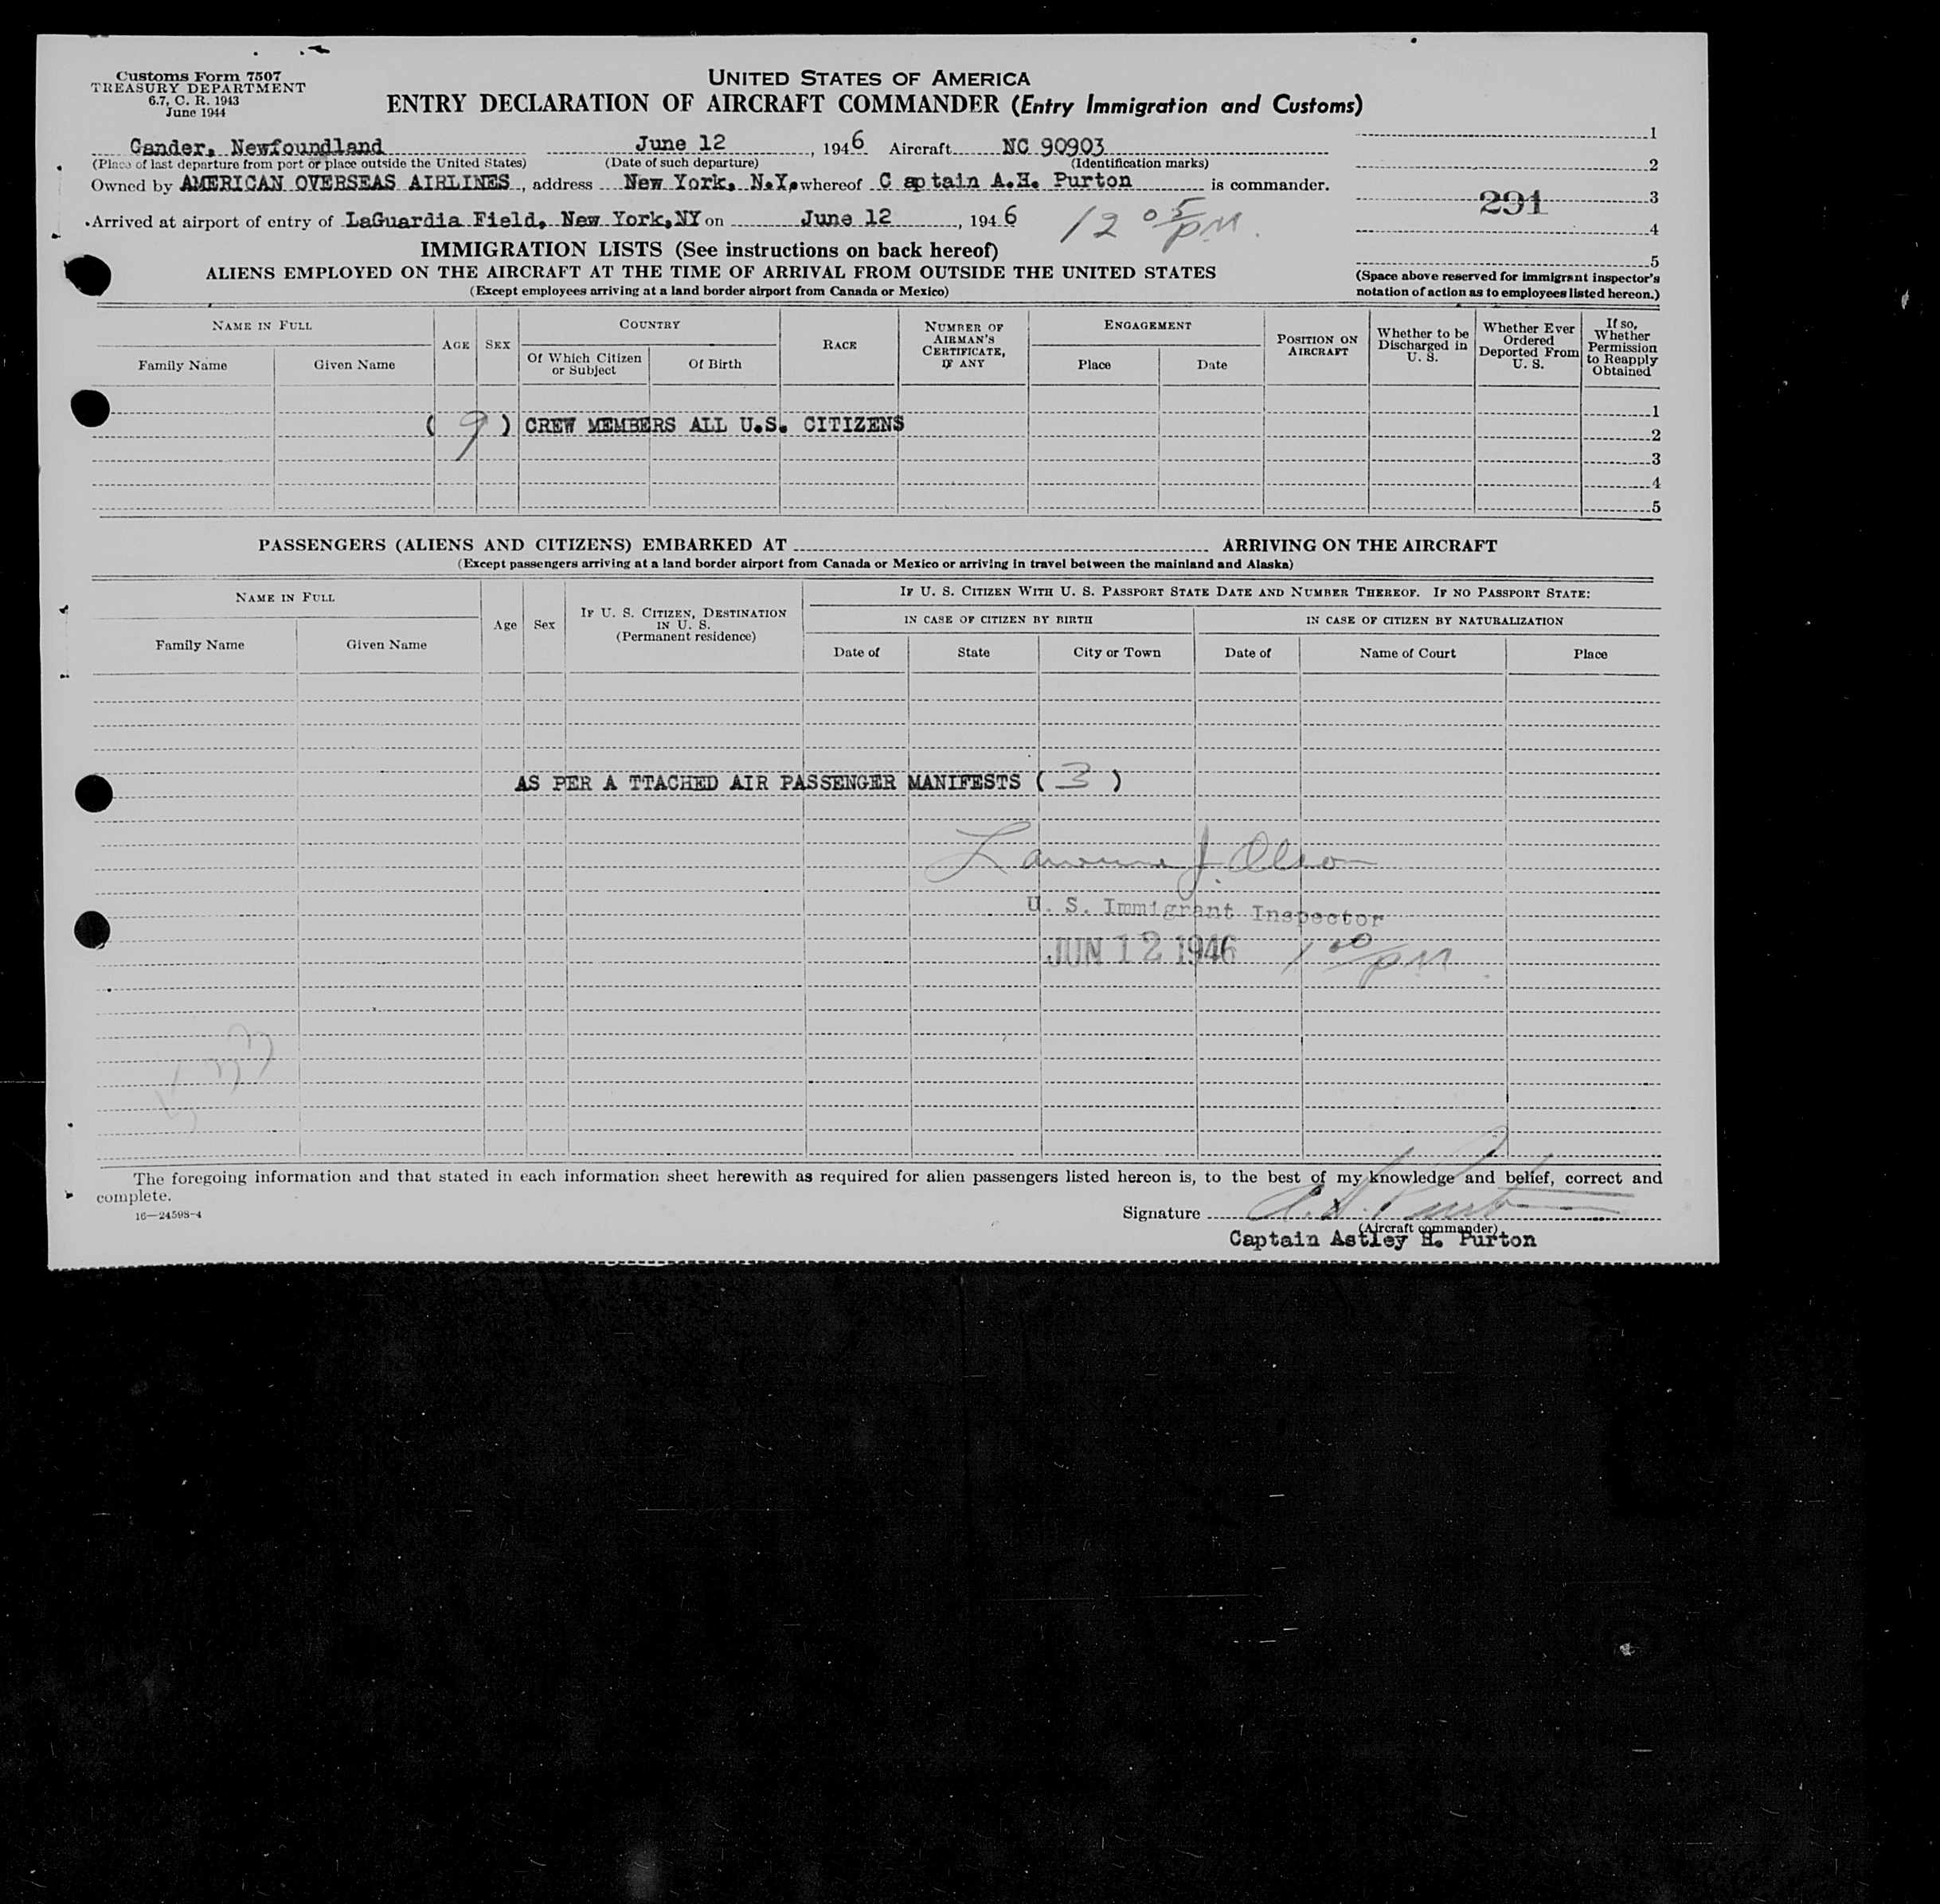 Customs Form 7507
TREASURY DEPARTMENT
6.7, C. R. 1943
June 1944
UNITED STATES OF AMERICA
ENTRY DECLARATION OF AIRCRAFT COMMANDER (Entry Immigration and Customs)
Gander, Newfoundland June 12, 1946 Aircraft NC 90903
(Place of last departure from port or place outside the United States) (Date of such departure) (Identification marks)
Owned by AMERICAN OVERSEAS AIRLINES, address New York, N.Y. whereof C aptain A.H. Purton is commander.
Arrived at airport of entry of LaGuardia Field, New York, NY on June 12, 1946 12 05 PM.
1
2
291 3
4
5
(Space above reserved for immigrant inspector's notation of action as to employees listed hereon.)
IMMIGRATION LISTS (See instructions on back hereof)
ALIENS EMPLOYED ON THE AIRCRAFT AT THE TIME OF ARRIVAL FROM OUTSIDE THE UNITED STATES
(Except employees arriving at a land border airport from Canada or Mexico)
NAME IN FULL
Family Name Given Name
AGE
SEX
COUNTRY
Of Which Citizen or Subject
Of Birth
RACE
NUMBER OF AIRMAN'S CERTIFICATE, IF ANY
ENGAGEMENT
Place Date
POSITION ON AIRCRAFT
Whether to be Discharged in U. S.
Whether Ever Ordered Deported From U. S.
If so, Whether Permission to Reapply Obtained
1
( 9 ) CREW MEMBERS ALL U.S. CITIZENS 2
3
4
5
PASSENGERS (ALIENS AND CITIZENS) EMBARKED AT ARRIVING ON THE AIRCRAFT
(Except passengers arriving at a land border airport from Canada or Mexico or arriving in travel between the mainland and Alaska)
NAME IN FULL
Family Name Given Name
Age
Sex
IF U. S. CITIZEN, DESTINATION IN U. S. (Permanent residence)
IF U. S. CITIZEN WITH U. S. PASSPORT STATE DATE AND NUMBER THEREOF. IF NO PASSPORT STATE:
IN CASE OF CITIZEN BY BIRTH IN CASE OF CITIZEN BY NATURALIZATION
Date of State City or Town Date of Name of Court Place
AS PER A TTACHED AIR PASSENGER MANIFESTS ( 3 )
Lawrence J. Olson
U. S. Immigrant Inspector
JUN 12 1946 1 00 PM
The foregoing information and that stated in each information sheet herewith as required for alien passengers listed hereon is, to the best of my knowledge and belief, correct and
complete.
16—24598-4
Signature A. H. Purton
(Aircraft commander)
Captain Astley H. Purton